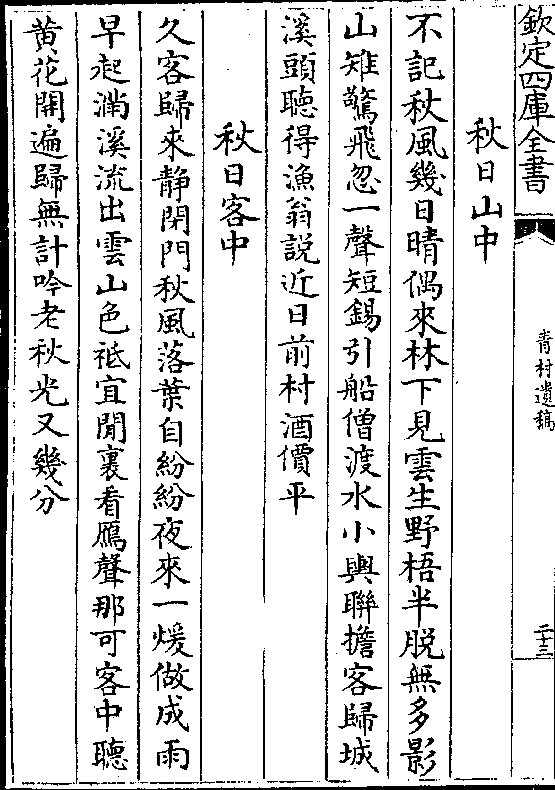 欽定四庫全書
青村遺稿
二十三
秋日山中
不記秋風幾日晴偶來林下見雲生野梧半脱無多影
山雉驚飛忽一聲短錫引船僧渡水小輿聯擔客歸城
溪頭聽得漁翁説近日前村酒價平
秋日客中
久客歸來静閉門秋風落葉自紛紛夜來一煖做成雨
早起滿溪流出雲山色祗宜閒裏看鴈聲那可客中聽
黄花開遍歸無計吟老秋光又幾分